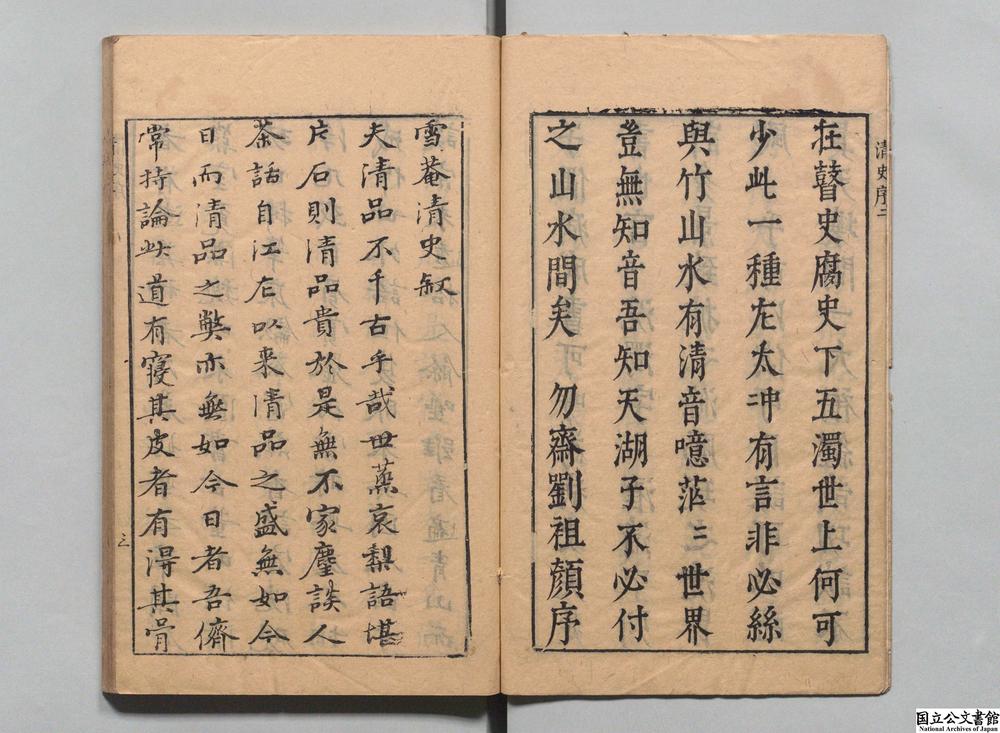 清史序二
在瞽史腐史下五濁世上何可
少此一種左太冲有言非必絲
與竹山水有清音噫茫〻世界
豈無知音吾知天湖子不必付
之山水間矣 勿齋劉祖顔序
雪菴清史叙
夫清品不千古乎哉世蒸哀梨語堪
片石則清品貴於是無不家麈談人
茶話自江左以来清品之盛無如今
日而清品之獘亦無如今日者吾儕
常持論此道有寝其皮者有淂其骨
三
国立公文書館
National Archives of Japan